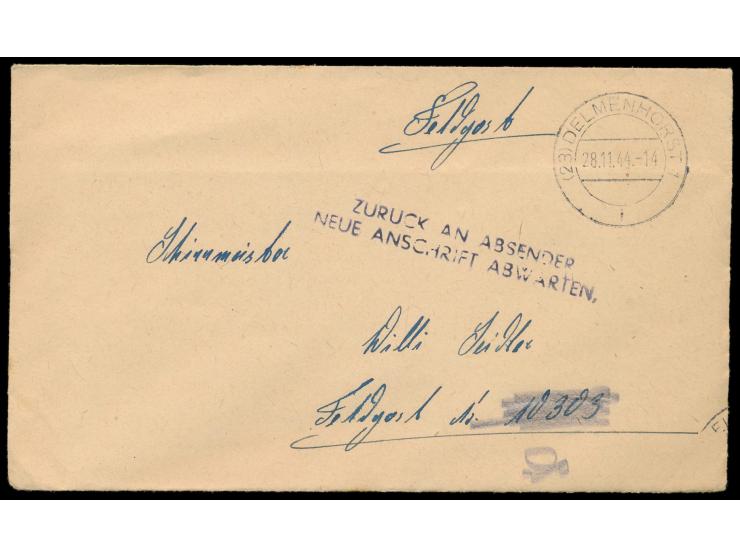 Feldpost
(23) DELMENHORST 1
28.11.44.-14
i
ZURUCK AN ABSENDER
NEUE ANSCHRIFT ABWARTEN,
Schirrmeister
Willi Seidler
Feldpost Nr. 10303